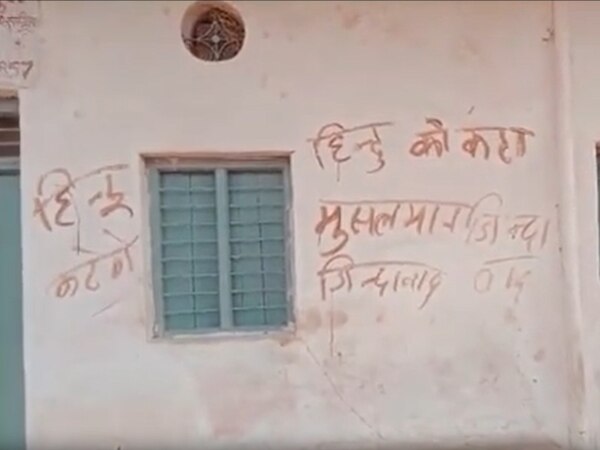 857
हिन्दू
कटेगे
हिन्दु को कहा
मुसलमान जिन्दा
जिन्दाबाद बाद